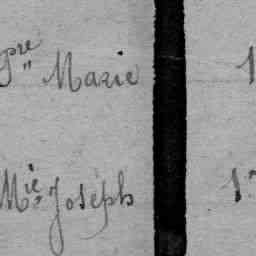 Pre Marie 1
Mie Joseph 17